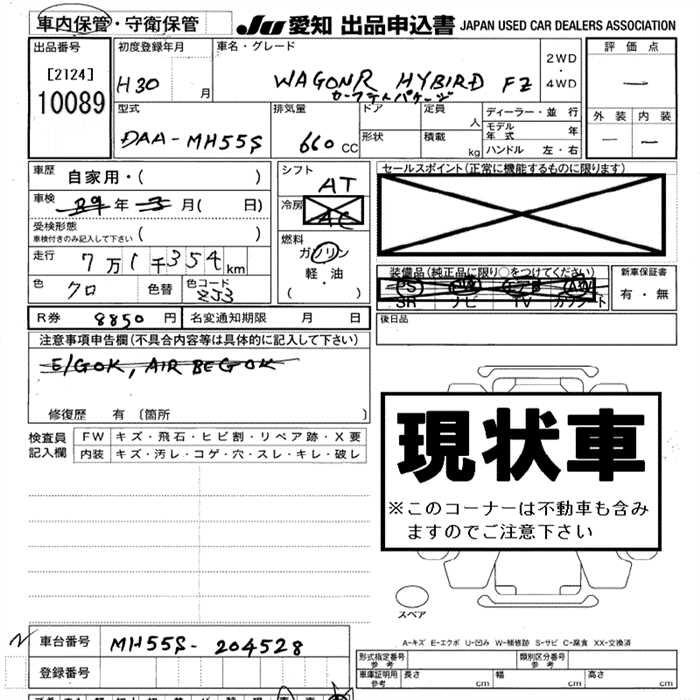 車内保管・守衛保管
JU 愛知 出品申込書 JAPAN USED CAR DEALERS ASSOCIATION
出品番号
[2124]
10089
初度登録年月
H30 月
車名・グレード
WAGONR HYBIRD FZ
セーフティパッケージ
2WD
・
4WD
評価点
—
外装 内装
— —
型式
DAA-MH55S
排気量
660 CC
ドア
形状
定員 人
積載 kg
ディーラー・並行
モデル年式 年
ハンドル 左・右
車歴 自家用・( )
車検 年 月( 日)
受検形態
車検付きのみ記入して下さい ( )
走行 7万1千354km
色 クロ 色替 色コード ZJ3
シフト AT
冷房 AC
燃料
ガソリン
軽・油
( )
セールスポイント(正常に機能するものに限ります)
装備品(純正品に限り○をつけてください)
PS PW エアB AW
SR ナビ TV カワシート
新車保証書
有・無
R券 8850円 名変通知期限 月 日
後日品
注意事項申告欄(不具合内容等は具体的に記入して下さい)
E/GOK, AIR BEGOK
修復歴 有 〔箇所 〕
検査員記入欄
FW キズ・飛石・ヒビ割・リペア跡・X要
内装 キズ・汚レ・コゲ・穴・スレ・キレ・破レ
現状車
※このコーナーは不動車も含み
ますのでご注意下さい
スペア
A-キズ E-エクボ U-凹み W-補修跡 S-サビ C-腐食 XX-交換済
車台番号 MH55S-204528
登録番号
形式指定番号
参考
類別区分番号
参考
車庫証明用
参考
長さ cm 幅 cm 高さ cm